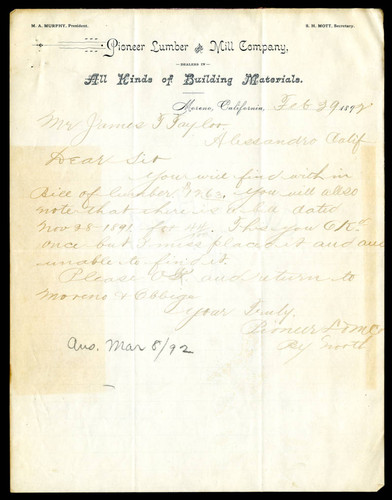 M. A. MURPHY, President.
S. H. MOTT, Secretary.
Pioneer Lumber and Mill Company,
—DEALERS IN—
All Kinds of Building Materials.
Moreno, California, Feb 29 1892
Mr James T Taylor
Alessandro Calif
Dear Sir
Your will find with in
Bill of lumber 12.63. You will also
note that there is a bill dated
Nov 28 1891 for This you OK.d
once but I miss placed it and am
unable to find it.
Please OK and return to
Moreno & Oblige
Your Truly
Pioneer L & M Co
By Mott
Ans. Mar 8/92